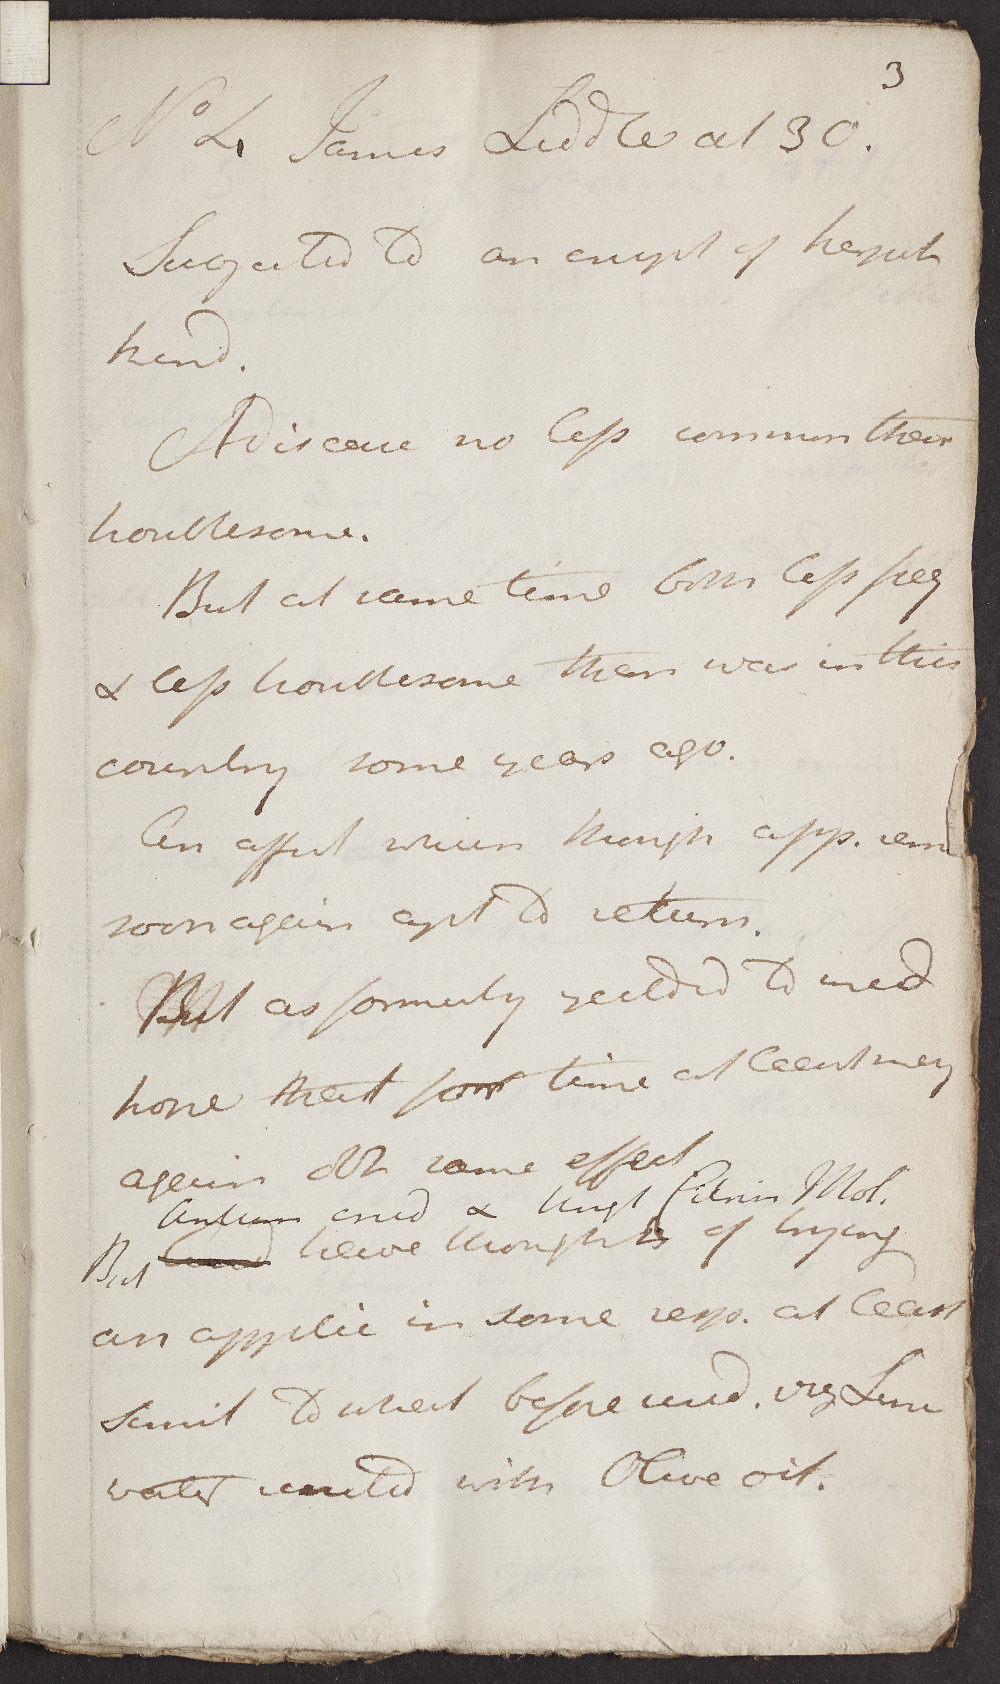 3
No 4 James Liddle at 30.
Subjected to an erupt of herpet
kind.
A disease no less common than
troublesome.
But at same time both less freq
& less troublesome than was in this
country some years ago.
An affect which though app. rem
soon again apt to return.
But as formerly yeilded to med
hope that for time at least may
again ob same effect
Antim crud & Ungt Citrin Mol.
But have thoughts of trying
an applic in some resp. at least
simil to what before used. viz Lime
water united with Olive oil.